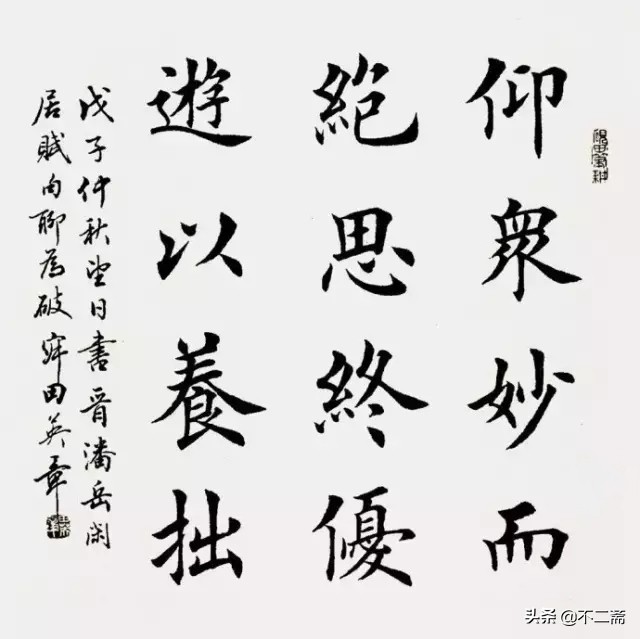 仰衆妙而
絶思終優
遊以養拙
戊子仲秋望日書晋潘岳闲
居賦句聊為破寂田英章
头条 @不二斋